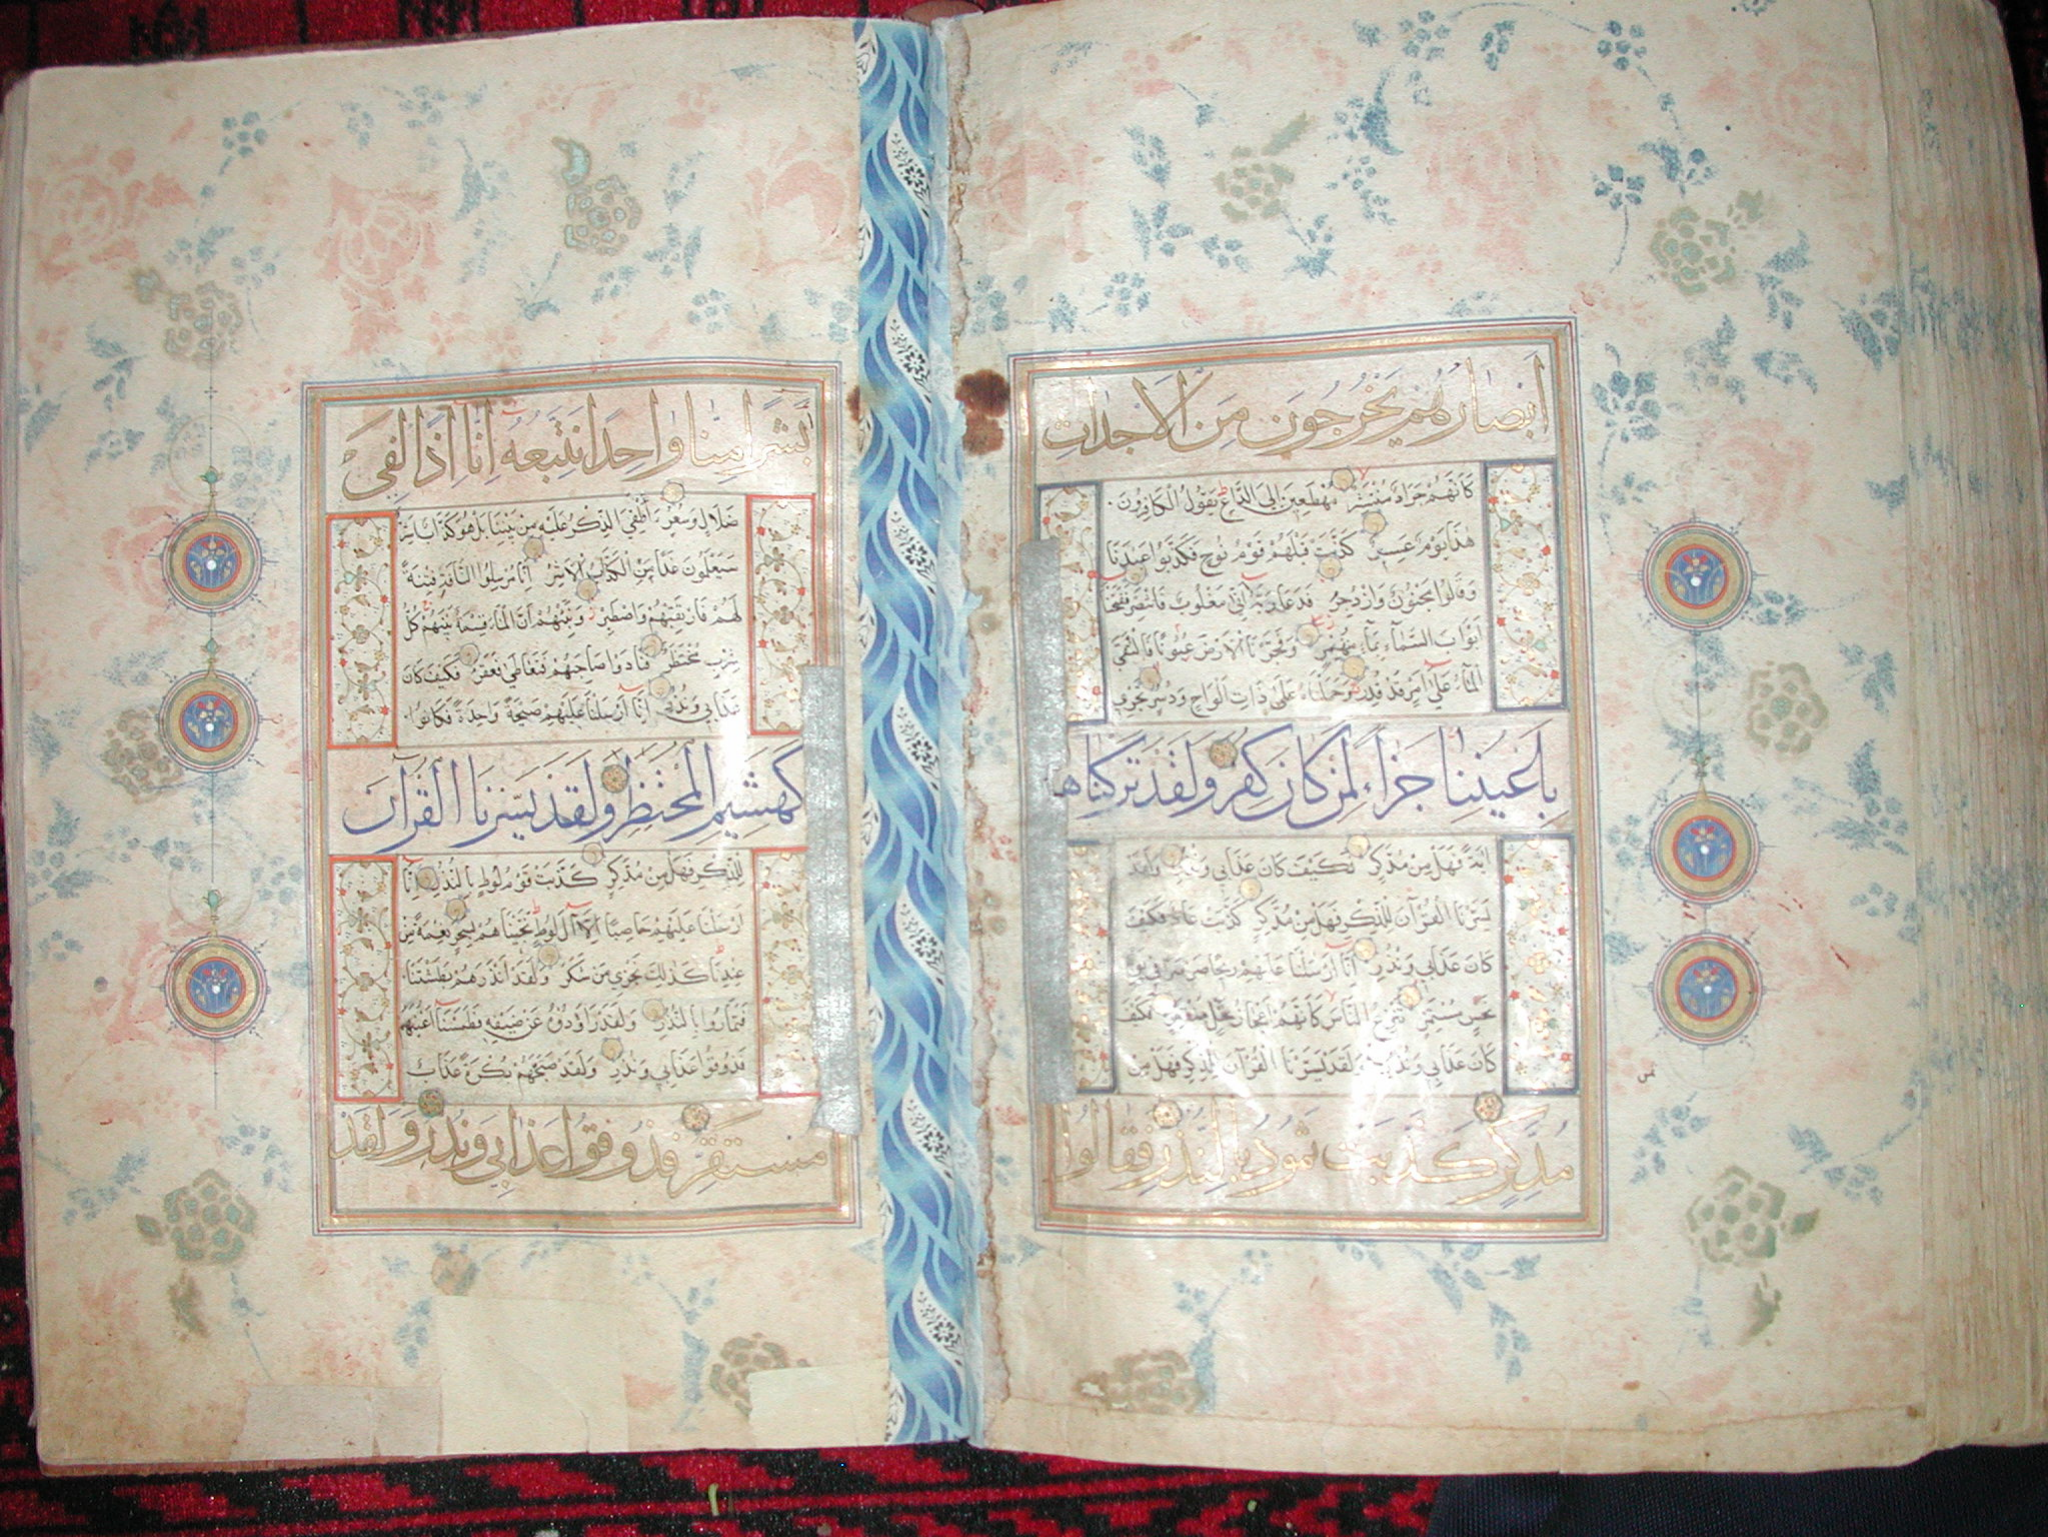 ابصارهم يخرجون من الاجداث
كانهم جراد منتشر مهطعين الى الداع يقول الكافرون
هذا يوم عسر كذبت قبلهم قوم نوح فكذبوا عبدنا
وقالوا مجنون وازدجر فدعا ربه اني مغلوب فانتصر ففتحنا
ابواب السماء بماء منهمر وفجرنا الارض عيونا فالتقى
الماء على امر قد قدر وحملناه على ذات الواح ودسر تجري
باعيننا جزاء لمن كان كفر ولقد تركناها
اية فهل من مدكر فكيف كان عذابي ونذر ولقد
يسرنا القرآن للذكر فهل من مدكر كذبت عاد فكيف
كان عذابي ونذر انا ارسلنا عليهم ريحا صرصرا في يوم
نحس مستمر تنزع الناس كانهم اعجاز نخل منقعر فكيف
كان عذابي ونذر ولقد يسرنا القرآن للذكر فهل من
مدكر كذبت ثمود بالنذر فقالوا
ابشرا منا واحدا نتبعه انا اذا لفي
ضلال وسعر ءالقي الذكر عليه من بيننا بل هو كذاب اشر
سيعلمون غدا من الكذاب الاشر انا مرسلوا الناقة فتنة
لهم فارتقبهم واصطبر ونبئهم ان الماء قسمة بينهم كل
شرب محتضر فنادوا صاحبهم فتعاطى فعقر فكيف كان
عذابي ونذر انا ارسلنا عليهم صيحة واحدة فكانوا
كهشيم المحتظر ولقد يسرنا القرآن
للذكر فهل من مدكر كذبت قوم لوط بالنذر انا
ارسلنا عليهم حاصبا الا آل لوط نجيناهم بسحر نعمة من
عندنا كذلك نجزي من شكر ولقد انذرهم بطشتنا
فتماروا بالنذر ولقد راودوه عن ضيفه فطمسنا اعينهم
فذوقوا عذابي ونذر ولقد صبحهم بكرة عذاب
مستقر فذوقوا عذابي ونذر ولقد